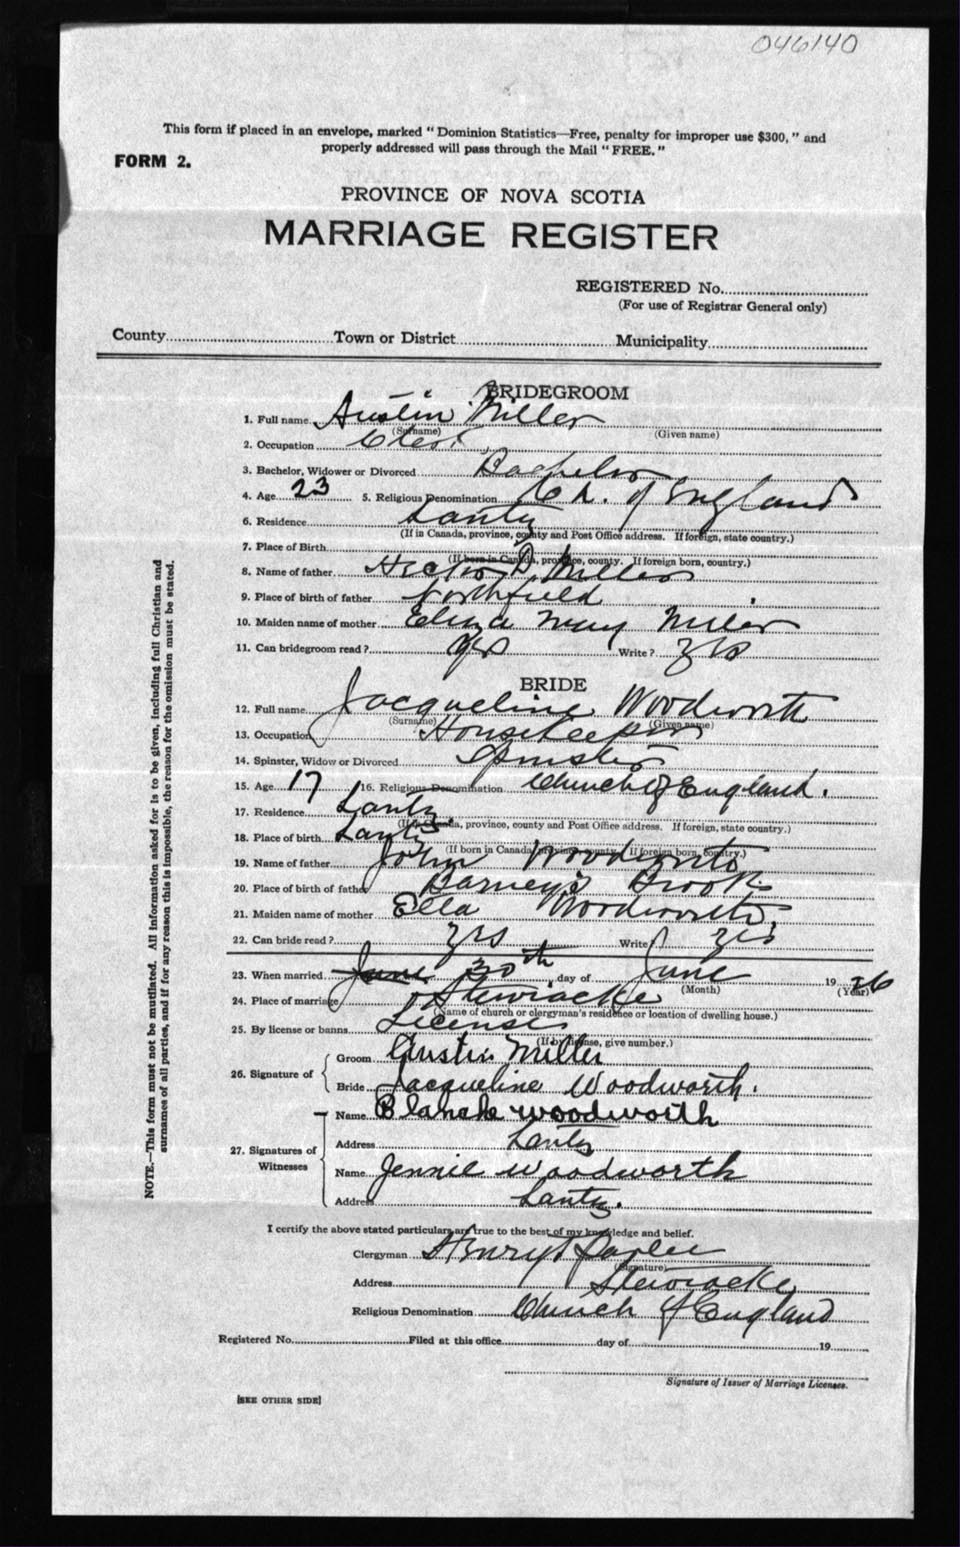 046140
This form if placed in an envelope, marked "Dominion Statistics—Free, penalty for improper use $300," and
properly addressed will pass through the Mail "FREE."
FORM 2.
PROVINCE OF NOVA SCOTIA
MARRIAGE REGISTER
REGISTERED No.
(For use of Registrar General only)
County Town or District Municipality
BRIDEGROOM
1. Full name Austin Miller
(Surname) (Given name)
2. Occupation
3. Bachelor, Widower or Divorced Bachelor
4. Age 23 5. Religious Denomination Ch. of England
6. Residence Lantz
(If in Canada, province, county and Post Office address. If foreign, state country.)
7. Place of Birth
(If born in Canada, province, county. If foreign born, country.)
8. Name of father Hector D. Miller
9. Place of birth of father Northfield
10. Maiden name of mother Eliza May Miller
11. Can bridegroom read? yes Write? yes
BRIDE
12. Full name Jacqueline Woodworth
(Surname) (Given name)
13. Occupation Housekeeper
14. Spinster, Widow or Divorced Spinster
15. Age 17 16. Religious Denomination Church of England.
17. Residence Lantz
(If in Canada, province, county and Post Office address. If foreign, state country.)
18. Place of birth Lantz
(If born in Canada, province, county. If foreign born, country.)
19. Name of father John Woodworth
20. Place of birth of father Barney's Brook
21. Maiden name of mother Ella Woodworth.
22. Can bride read? yes Write? yes
23. When married June 30th day of June 19 26
(Month) (Year)
24. Place of marriage Stewiacke
(Name of church or clergyman's residence or location of dwelling house.)
25. By license or banns License
(If by license, give number.)
26. Signature of
Groom Austin Miller
Bride Jacqueline Woodworth.
27. Signatures of Witnesses
Name Blanche woodworth
Address Lantz
Name Jennie woodworth
Address Lantz.
I certify the above stated particulars are true to the best of my knowledge and belief.
Clergyman Henry
(Signature)
Address Stewiacke
Religious Denomination Church of England
Registered No. Filed at this office day of 19
Signature of Issuer of Marriage Licenses.
[SEE OTHER SIDE]
NOTE.—This form must not be mutilated. All information asked for is to be given, including full Christian and
surnames of all parties, and if for any reason this is impossible, the reason for the omission must be stated.